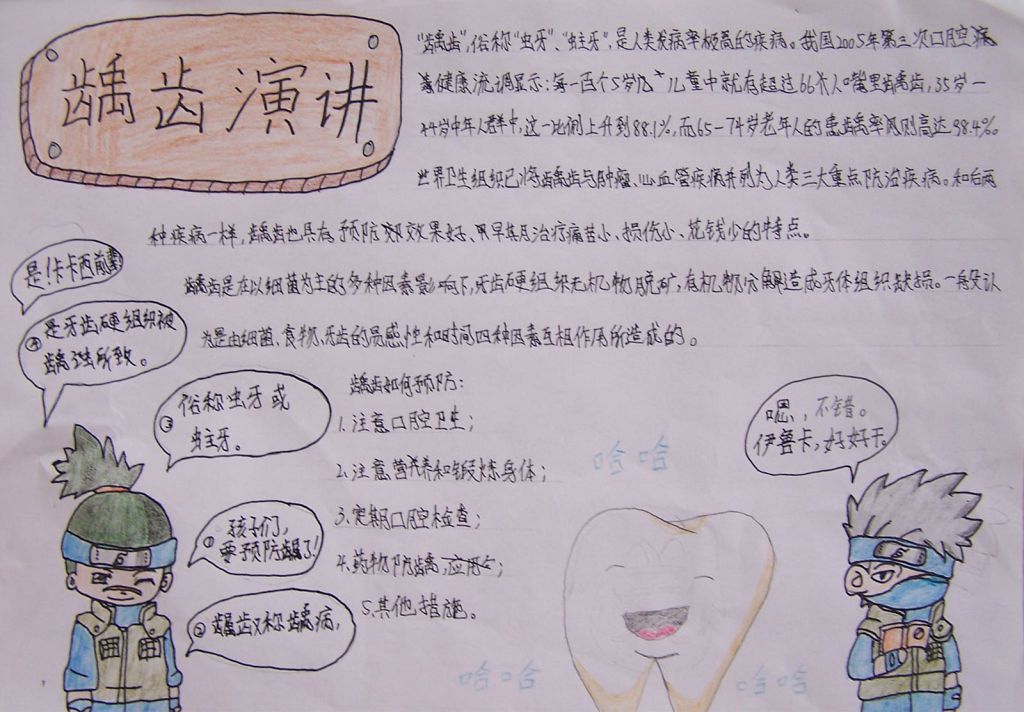 龋齿演讲
"龋齿",俗称"虫牙"、"蛀牙",是人类发病率极高的疾病。我国2005年第三次口腔病
健康流调显示:每一百个5岁 儿童中就有超过66个人嘴里龋齿,35岁一
44岁中年人群中,这一比例上升到88.1%,而65-74岁老年人的患龋率则高达98.4%。
世界卫生组织已将龋齿与肿瘤、心血管疾病并列为人类三大重点防治疾病。和后两
种疾病一样,龋齿也具有预防 效果好、早期治疗痛苦小、损伤小、花钱少的特点。
龋齿是在以细菌为主的多种因素影响下,牙齿硬组织无机物脱矿,有机物分解造成牙体组织缺损。一般认
为是由细菌、食物、牙齿的易感性和时间四种因素互相作用所造成的。
龋齿如何预防:
1.注意口腔卫生;
2.注意营养和锻炼身体;
3.定期口腔检查;
4.药物防龋,应用
5.其他措施。
是!卡卡西前辈
④是牙齿硬组织被
龋蚀所致。
③俗称虫牙或
蛀牙。
①孩子们,
要预防龋了!
②龋齿又称龋病,
嗯,不错。
伊鲁卡,好好干。
哈哈
哈哈
哈哈